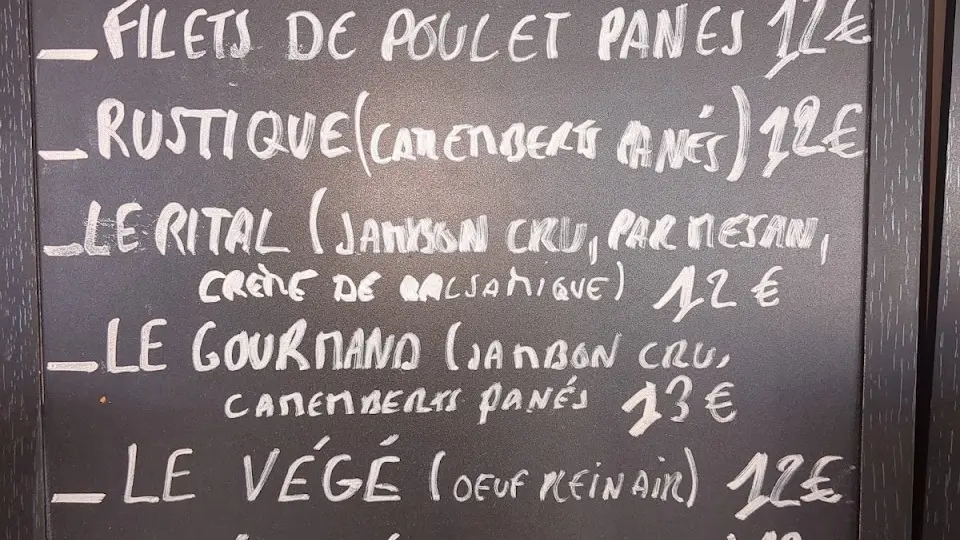 _ FILETS DE POULET PANES 12€
_ RUSTIQUE (CAMEMBERTS PANÉS) 12€
_ LE RITAL (JAMBON CRU, PARMESAN,
CRÈME DE BALSAMIQUE) 12€
_ LE GOURMAND (JAMBON CRU,
CAMEMBERTS PANÉS 13€
_ LE VÉGÉ (OEUF PLEIN AIR) 12€